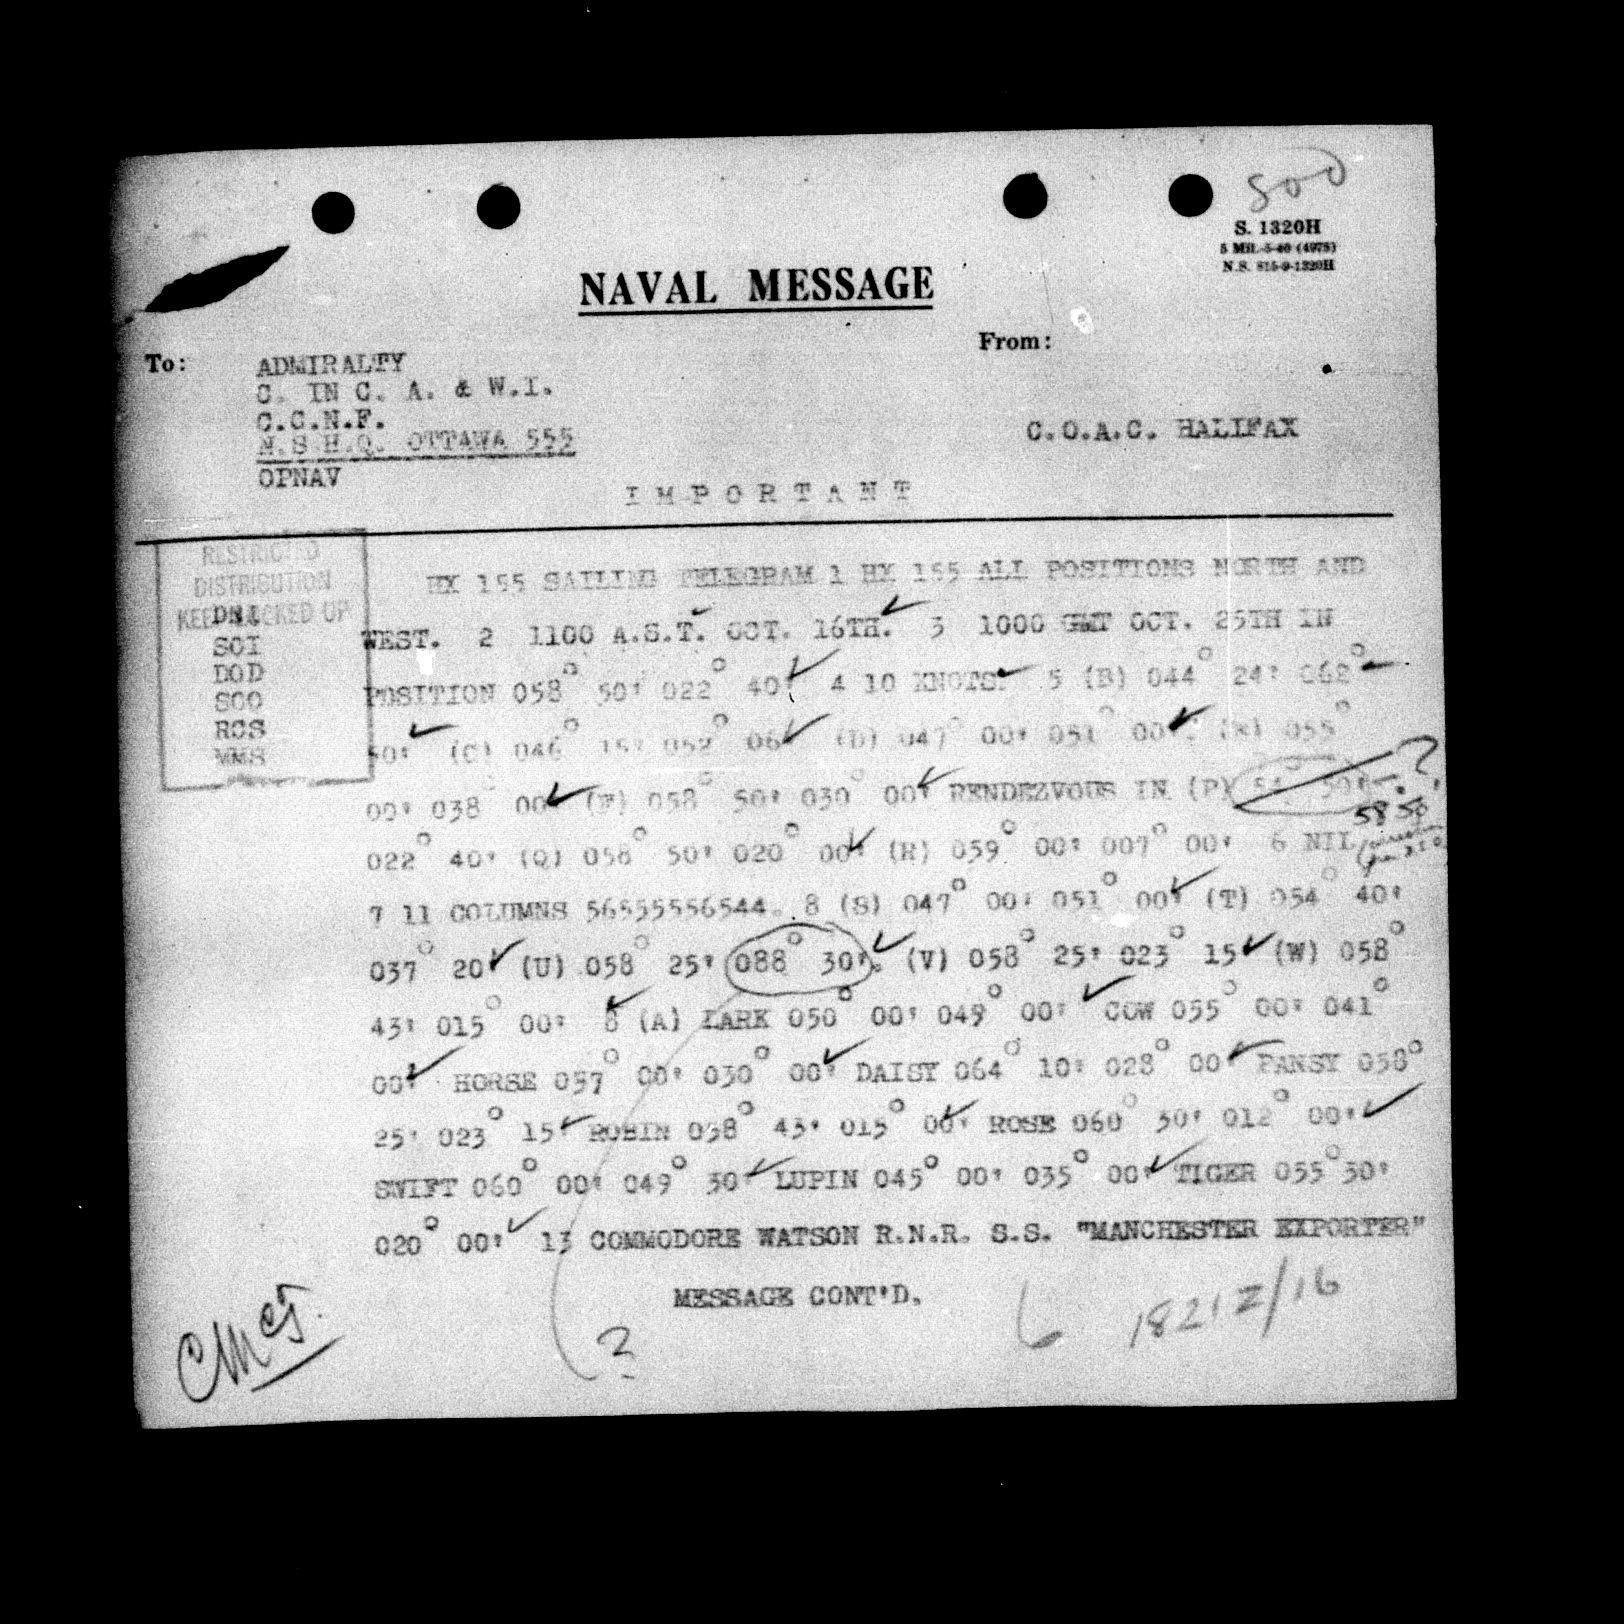 800
S. 1320H
5 MIL-5-40 (4975)
N.S. 815-9-1320H
NAVAL MESSAGE
To:
From:
ADMIRALTY
C. IN C. A. & W.I.
C.C.N.F.
N.S.H.Q. OTTAWA 555
OPNAV
C.O.A.C. HALIFAX
IMPORTANT
RESTRICTED
DISTRIBUTION
KEEP LOCKED UP
DNI
SOI
DOD
SOO
RCS
WMS
HX 155 SAILING TELEGRAM 1 HX 155 ALL POSITIONS NORTH AND
WEST. 2 1100 A.S.T. OCT. 16TH. 3 1000 GMT OCT. 25TH IN
POSITION 058° 50' 022° 40' 4 10 KNOTS. 5 (B) 044° 24' 062°
50' (C) 046° 15' 052° 06' (D) 047° 00' 051° 00' 055°
00' 038° 00' 058° 50' 030° 00' RENDEZVOUS IN (P) 50' ?
58 50
022° 40' (Q) 058° 50' 020° 00' (R) 059° 00' 007° 00' 6 NIL
7 11 COLUMNS 56555556544. 8 (S) 047° 00' 051° 00' (T) 054° 40'
037° 20' (U) 058° 25' 088° 30'. (V) 058° 25' 023° 15' (W) 058°
43' 015° 00' 8 (A) LARK 050° 00' 049° 00' COW 055° 00' 041°
00' HORSE 057° 00' 030° 00' DAISY 064° 10' 028° 00' PANSY 058°
25' 023° 15' ROBIN 058° 43' 015° 00' ROSE 060° 30' 012° 00'
SWIFT 060° 00' 049° 30' LUPIN 045° 00' 035° 00' TIGER 055° 30'
020° 00' 13 COMMODORE WATSON R.N.R. S.S. "MANCHESTER EXPORTER"
MESSAGE CONT'D.
?
6
1821Z/16